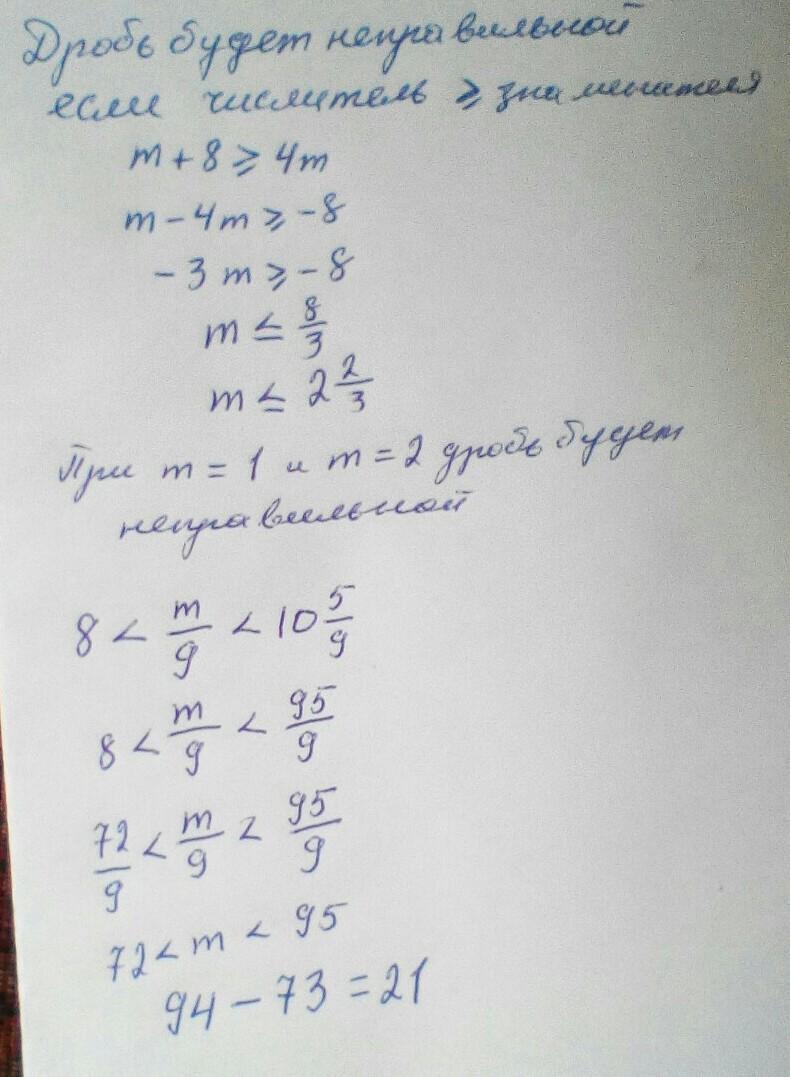 Дробь будет неправильной
если числитель ≥ знаменателя
m + 8 ≥ 4m
m - 4m ≥ -8
-3m ≥ -8
m ≤ 8/3
m ≤ 2 2/3
При m = 1 и m = 2 дробь будет
неправильной
8 < m/9 < 10 5/9
8 < m/9 < 95/9
72/9 < m/9 < 95/9
72 < m < 95
94 - 73 = 21